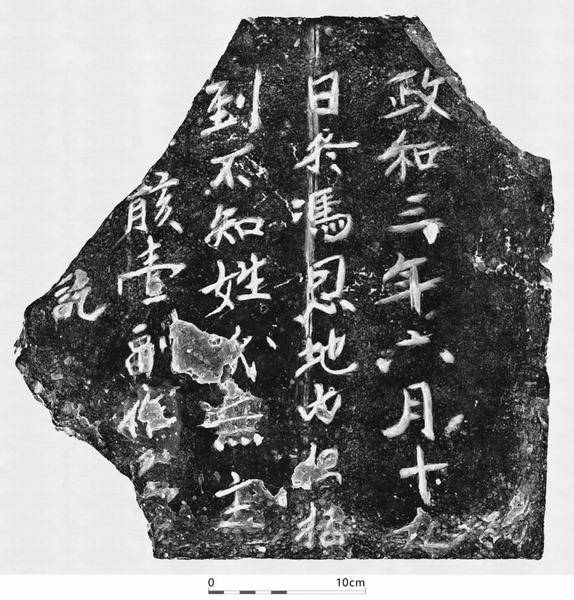 政和三年六月十九
日於馮恩地內根括
到不知姓氏無主
骸壹副
記
0 10cm